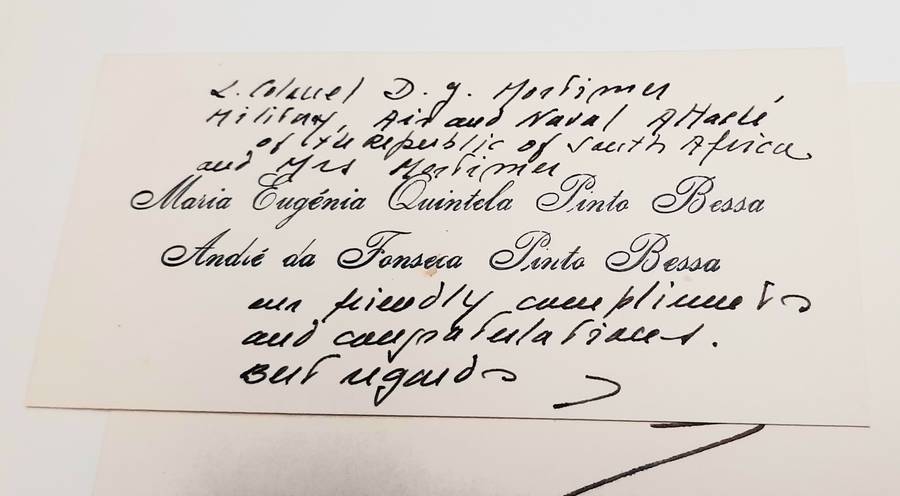 L. Colonel D. G. Mortimer
Military, Air and Naval Attaché
of the Republic of South Africa
and Mrs Mortimer
Maria Eugénia Quintela Pinto Bessa
André da Fonseca Pinto Bessa
our friendly compliments
and congratulations.
Best regards